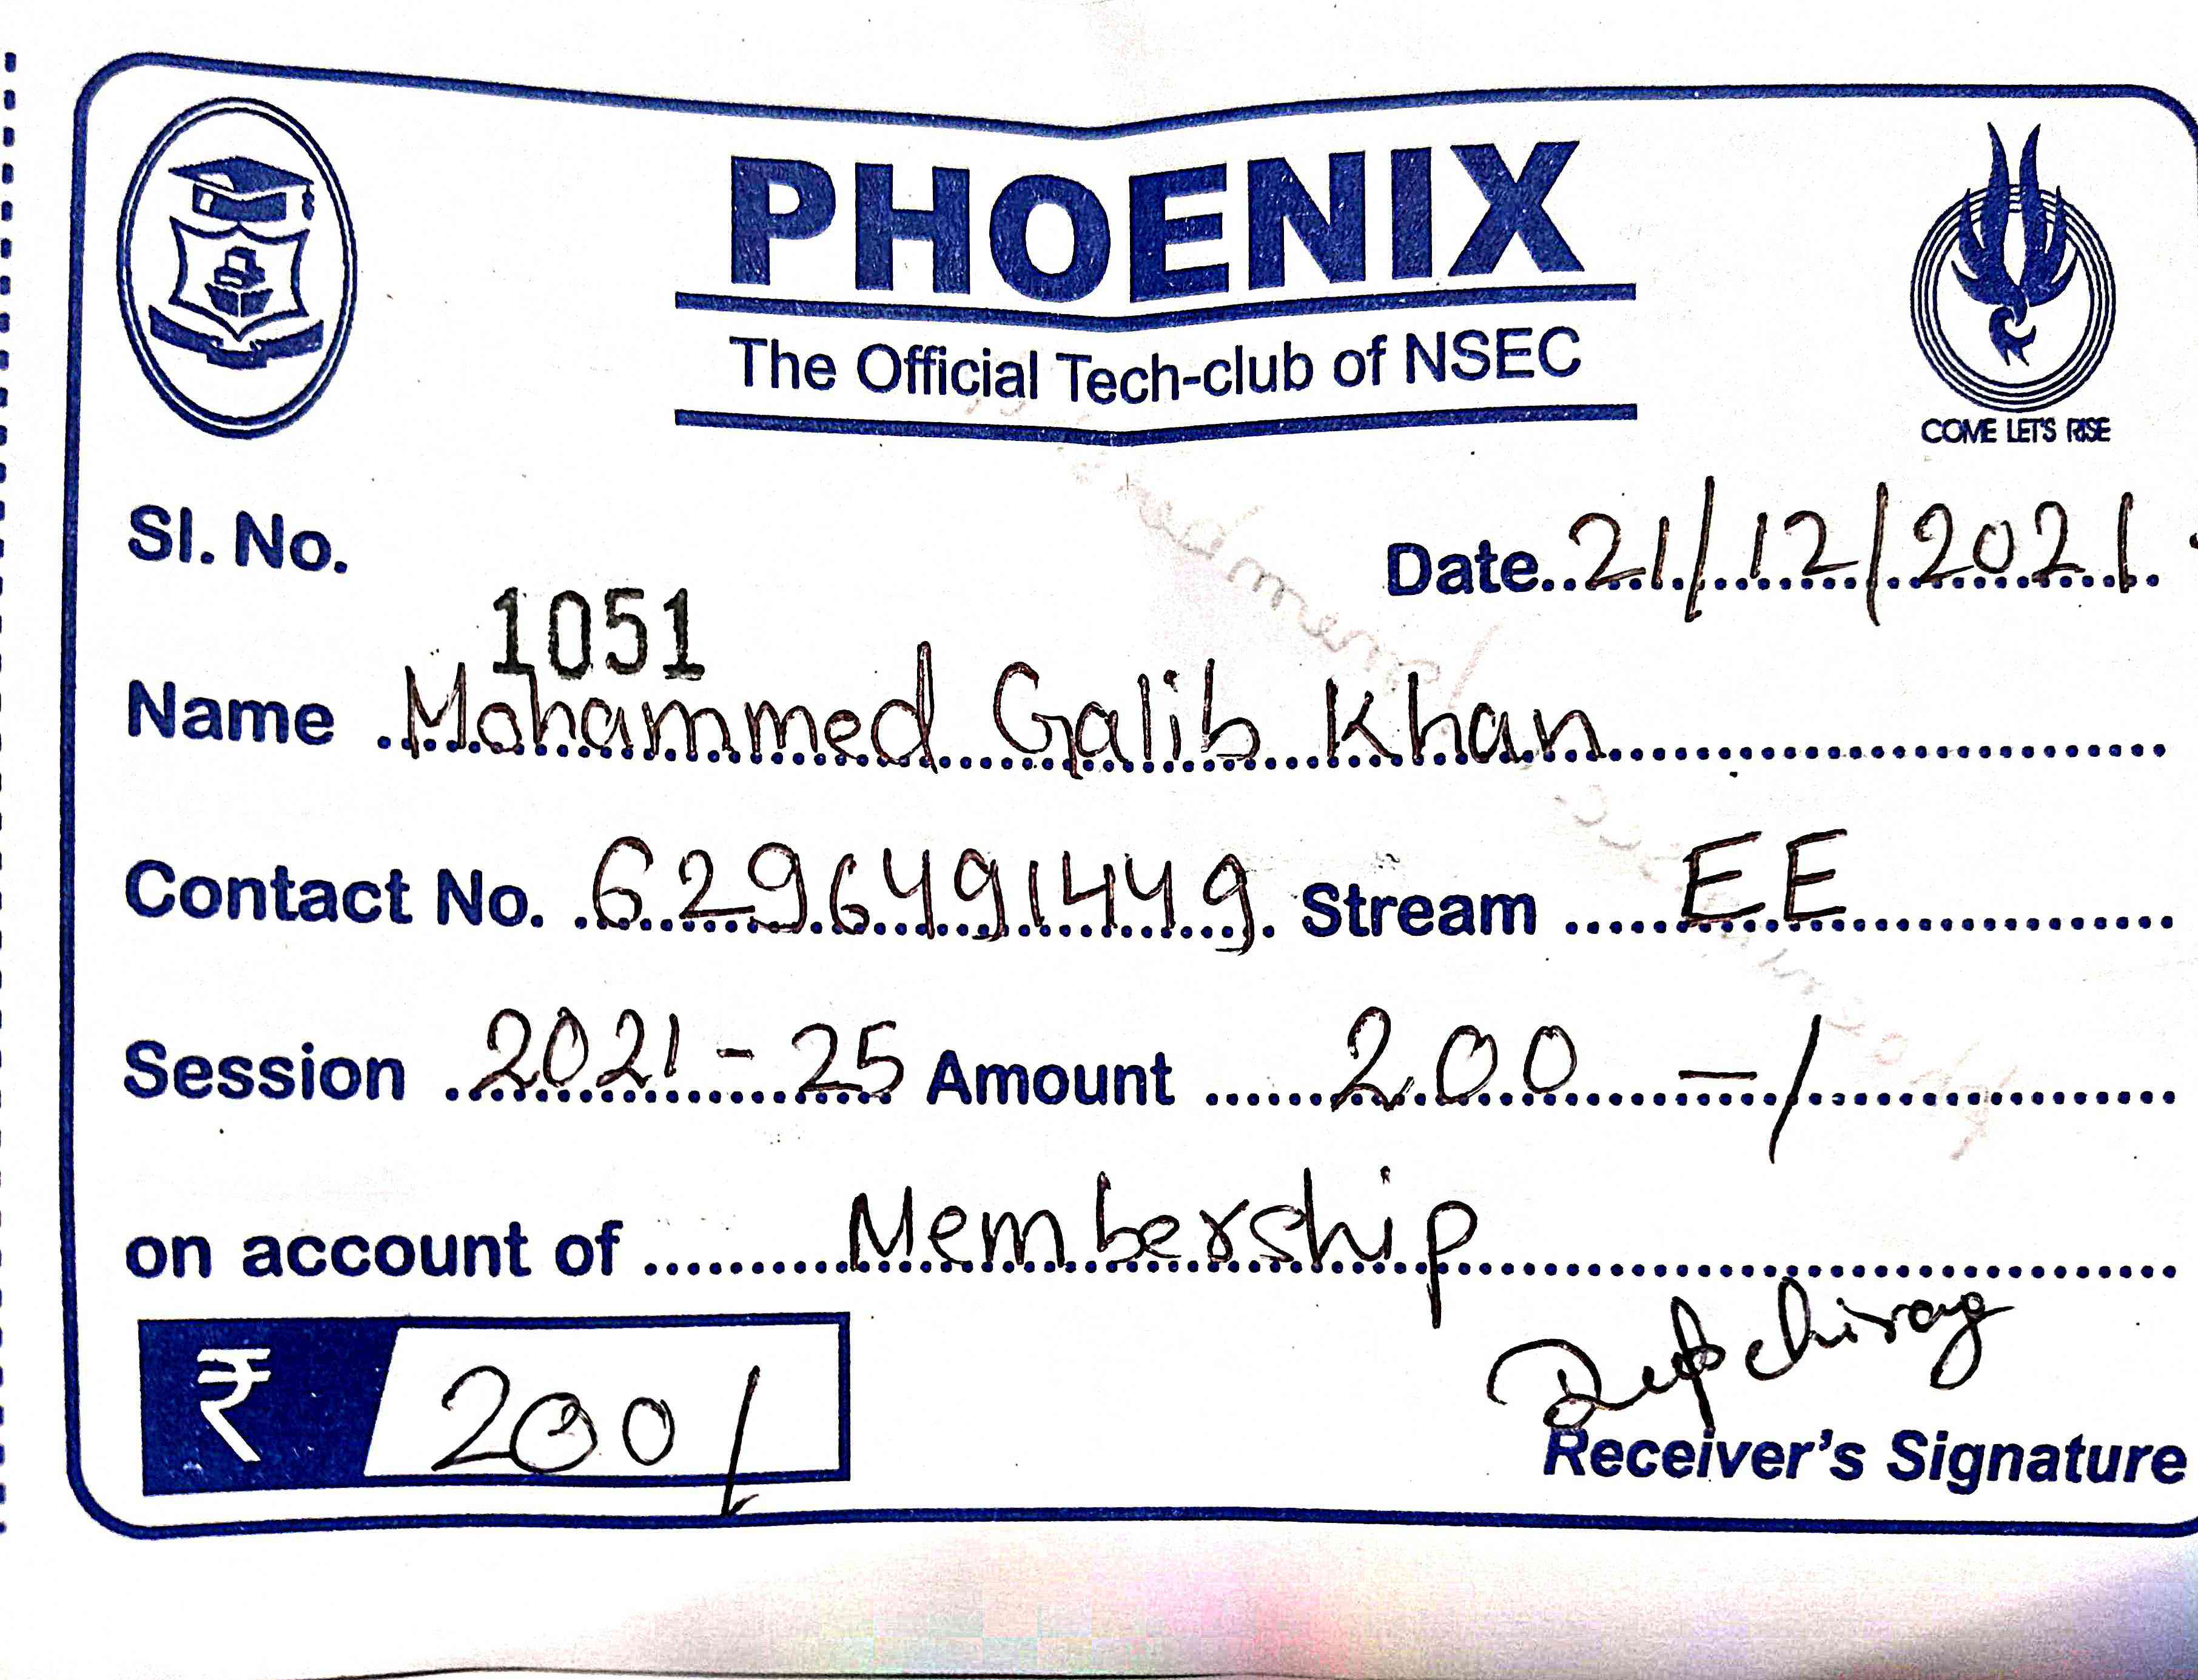 PHOENIX
The Official Tech-club of NSEC
COME LET'S RISE
Sl. No. 1051
Date 21/12/2021
Name Mohammed Galib Khan
Contact No. 6296491449 Stream EE
Session 2021-25 Amount 200 -/
on account of Membership
₹ 200/
Receiver's Signature